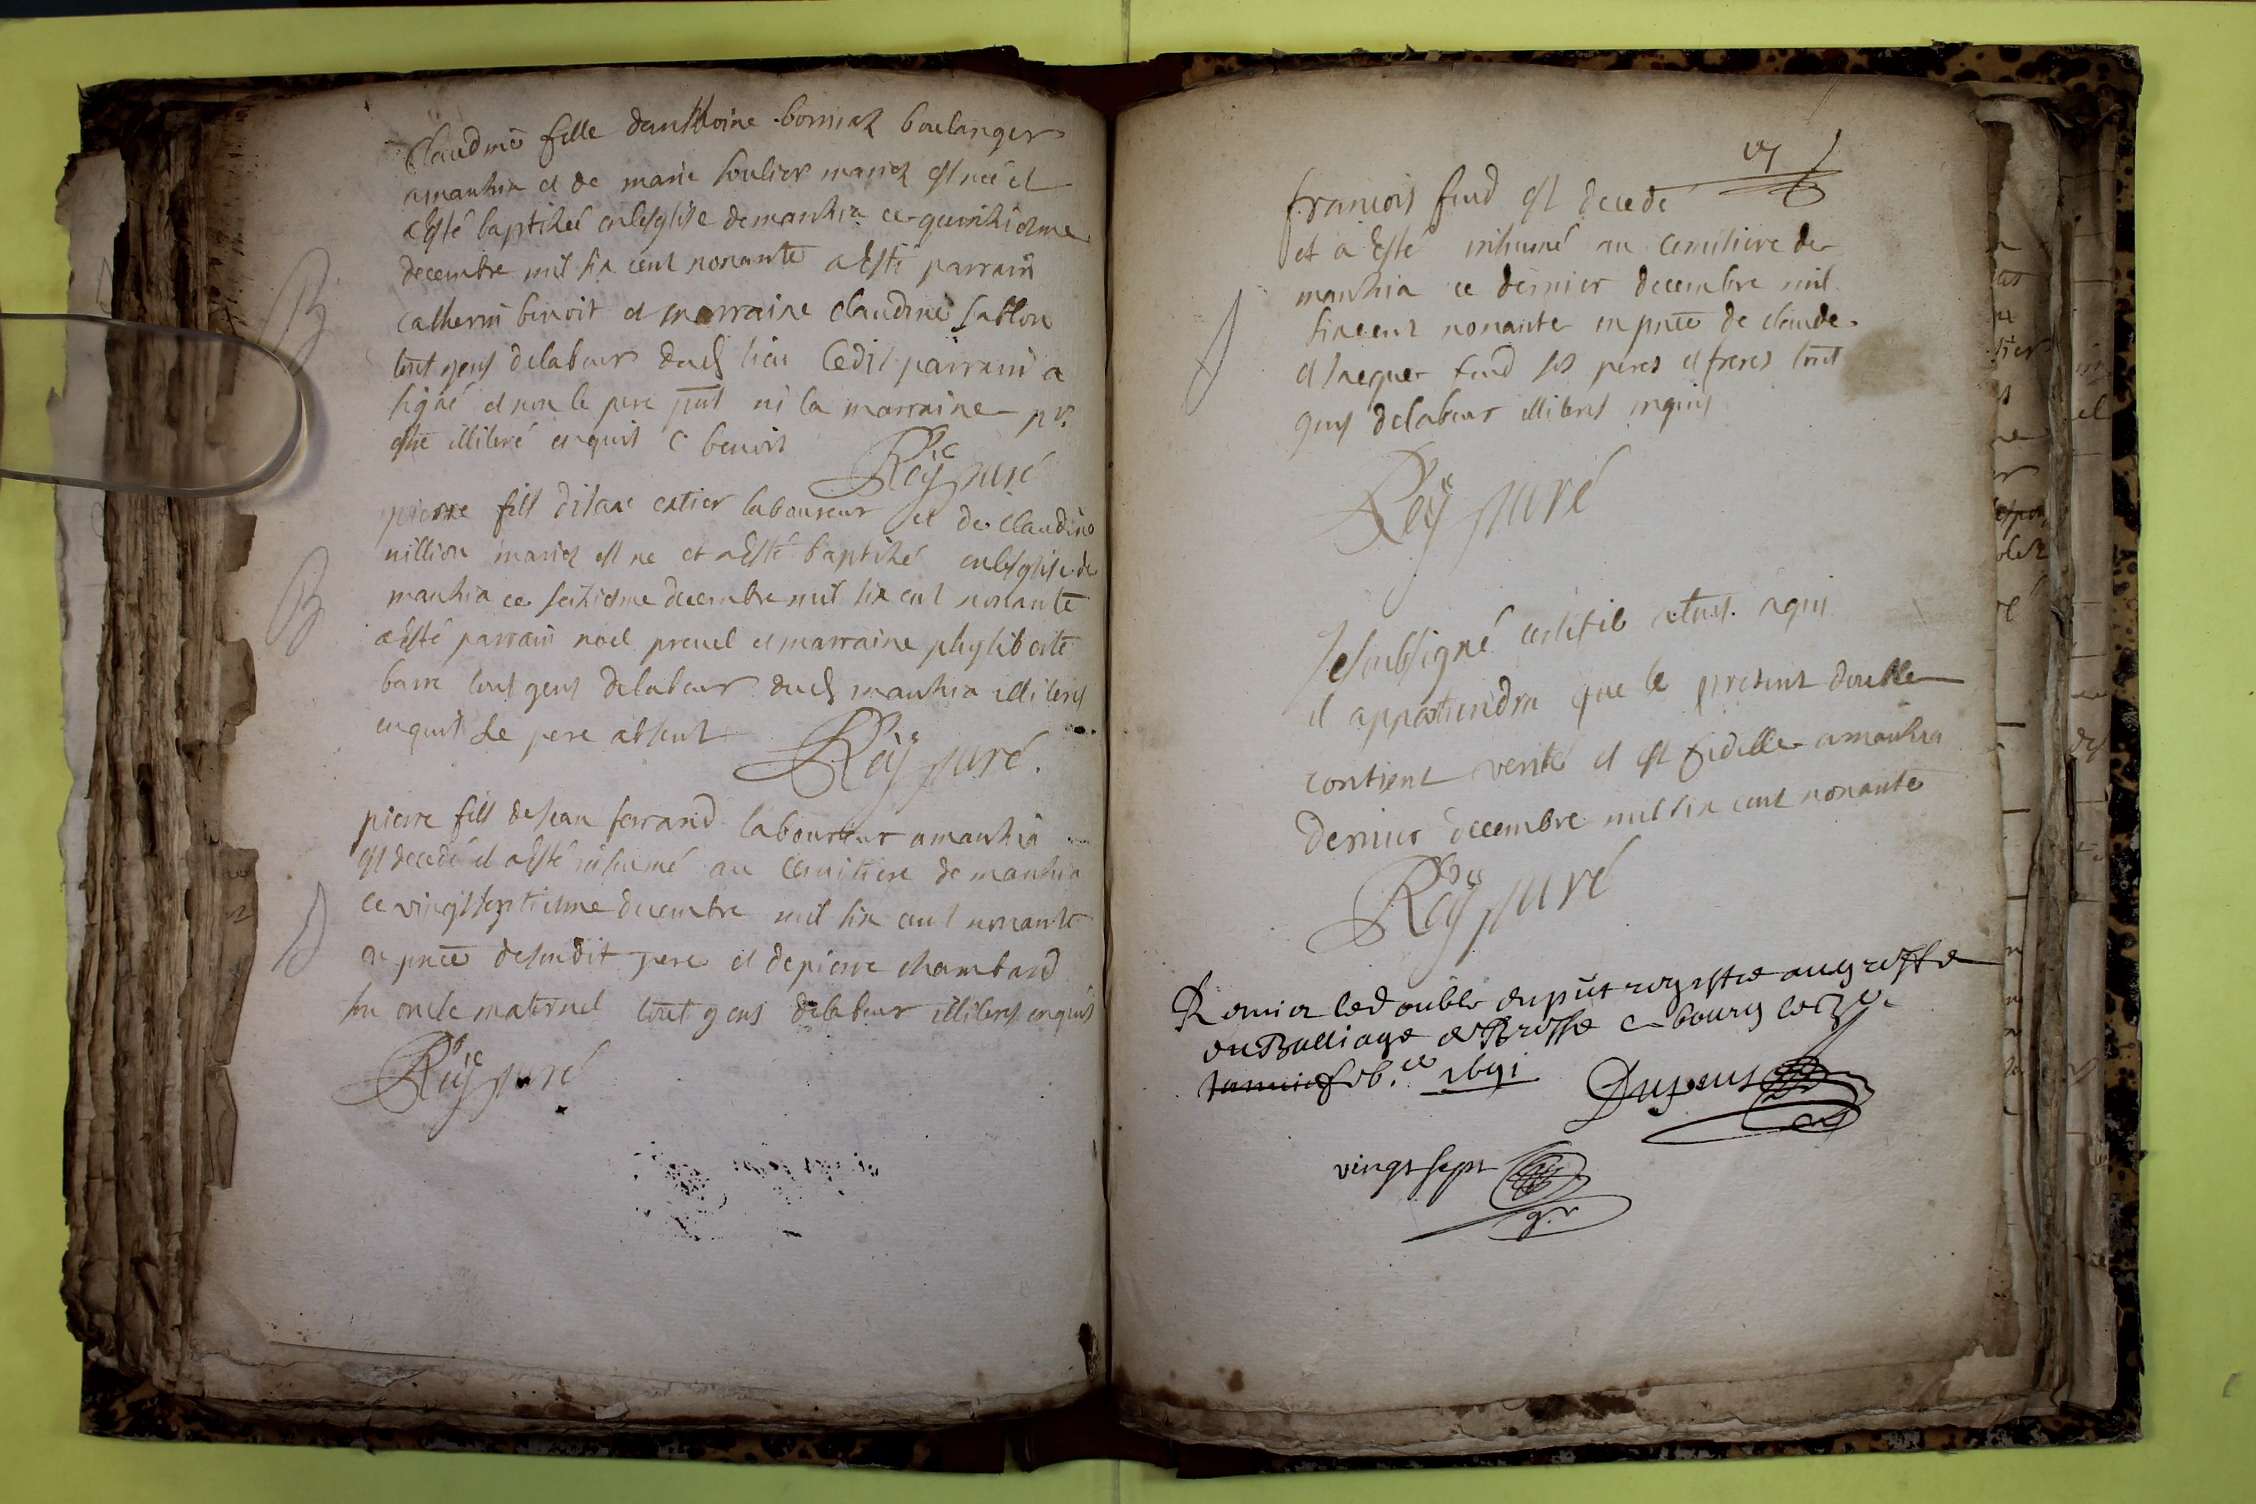 B
Claudine fille danthoine borniat boulanger
a manzia et de marie soulier mariez est née et
a esté baptisée en lesglise de manzia ce quinziesme
decembre mil six cent nonante a esté parrain
catherin benoit et marraine claudine sablon
tout gens de labeur dud lieu Ledit parrain a
signé et non le pere pnt ni la marraine pr
estre illiteré enquis C benoit
Rey curé
B
pierre fils disaac catier laboureur et de claudine
nillion mariez est ne et a esté baptisé en lesglise de
manzia ce seiziesme decembre mil six cent nonante
a esté parrain noel prevel et marraine phyliberte
barre tous gens de labeur dud manzia illiterés
enquis Le pere absent
Rey curé.
pierre fils de Jean ferrand laboureur a manzia
est decedé et a esté inhumé au cemitiere de manzia
ce vingtseptiesme decembre mil six cent nonante
en pnce de sondit pere et de pierre chambard
son oncle maternel tout gens de labeur illiterés enquis
Rey curé
francois fend est decedé
et a esté inhumé au cemitiere de
manzia ce dernier decembre mil
six cent nonante en pnce de claude
et Jacques fend ses peres et freres tout
gens de labeur illiterés enquis
Rey curé
Je soubsigné certifie a tous a qui
il appartiendra que le present double
contient verité et est fidelle a manzia
dernier decembre mil six cent nonante
Rey curé
Remis le double du pnt registre au greffe
du Balliage de Bresse a bourg le
Janvier feb. 1691
Dupeus
vingt sept